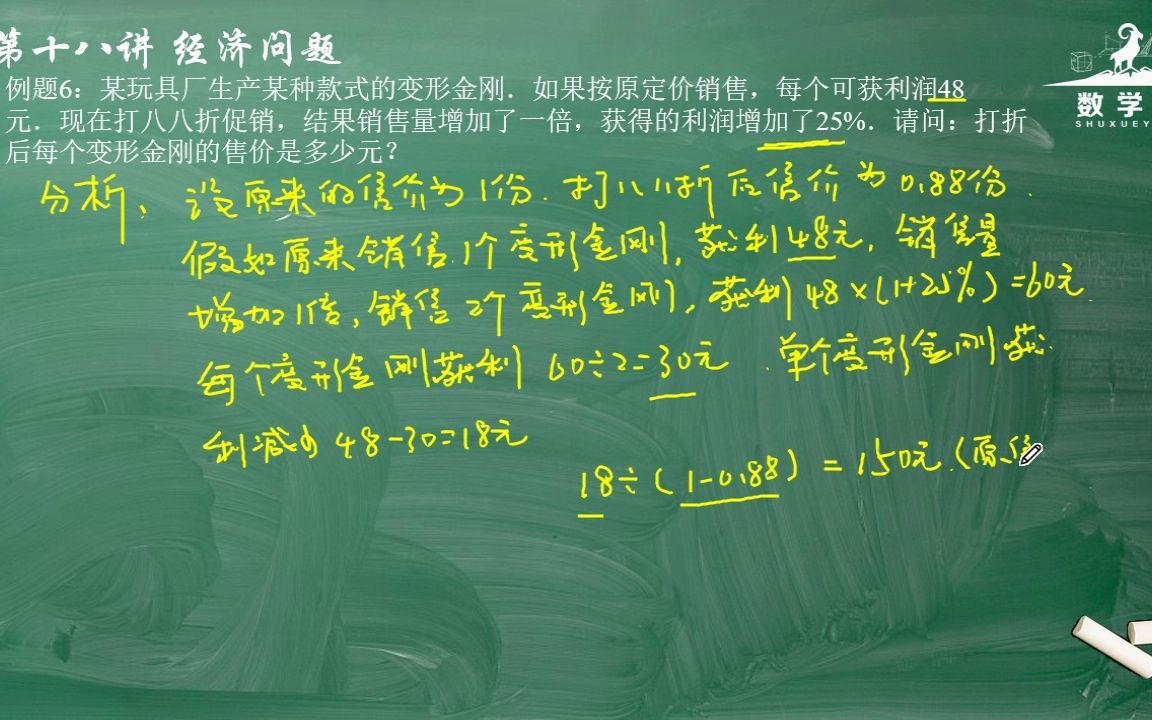 第十八讲 经济问题
例题6：某玩具厂生产某种款式的变形金刚．如果按原定价销售，每个可获利润48
元．现在打八八折促销，结果销售量增加了一倍，获得的利润增加了25%．请问：打折
后每个变形金刚的售价是多少元？
数学
SHUXUEY
分析：设原来的售价为1份．打八八折后售价为0.88份．
假如原来销售1个变形金刚，获利48元，销售量
增加1倍，销售2个变形金刚，获利48×(1+25%)=60元．
每个变形金刚获利60÷2=30元．单个变形金刚获
利减少48-30=18元
18÷(1-0.88)=150元．(原售